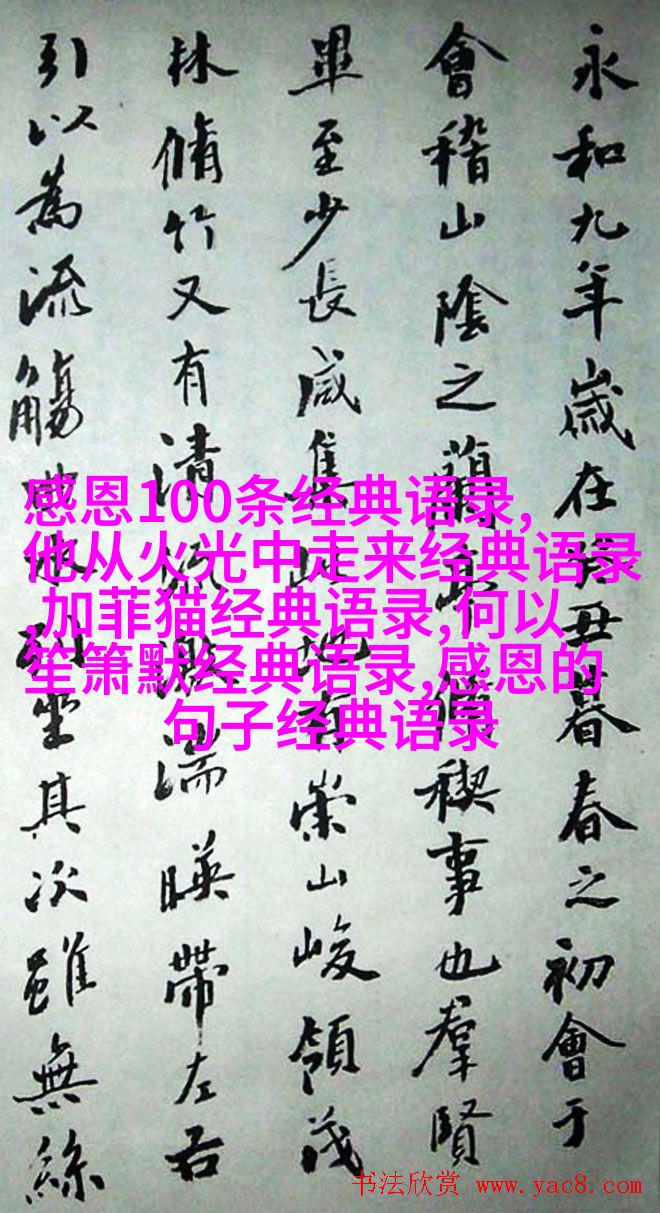 永和九年歲在癸丑暮春之初會于
會稽山陰之蘭亭脩稧事也羣賢
畢至少長咸集此地有崇山峻領茂
林脩竹又有清流激湍暎帶左右
引以為流觴曲水列坐其次雖無絲
感恩100条经典语录,
他从火光中走来经典语录
,加菲猫经典语录,何以
笙箫默经典语录,感恩的
句子经典语录
书法欣赏 www.yac8.com